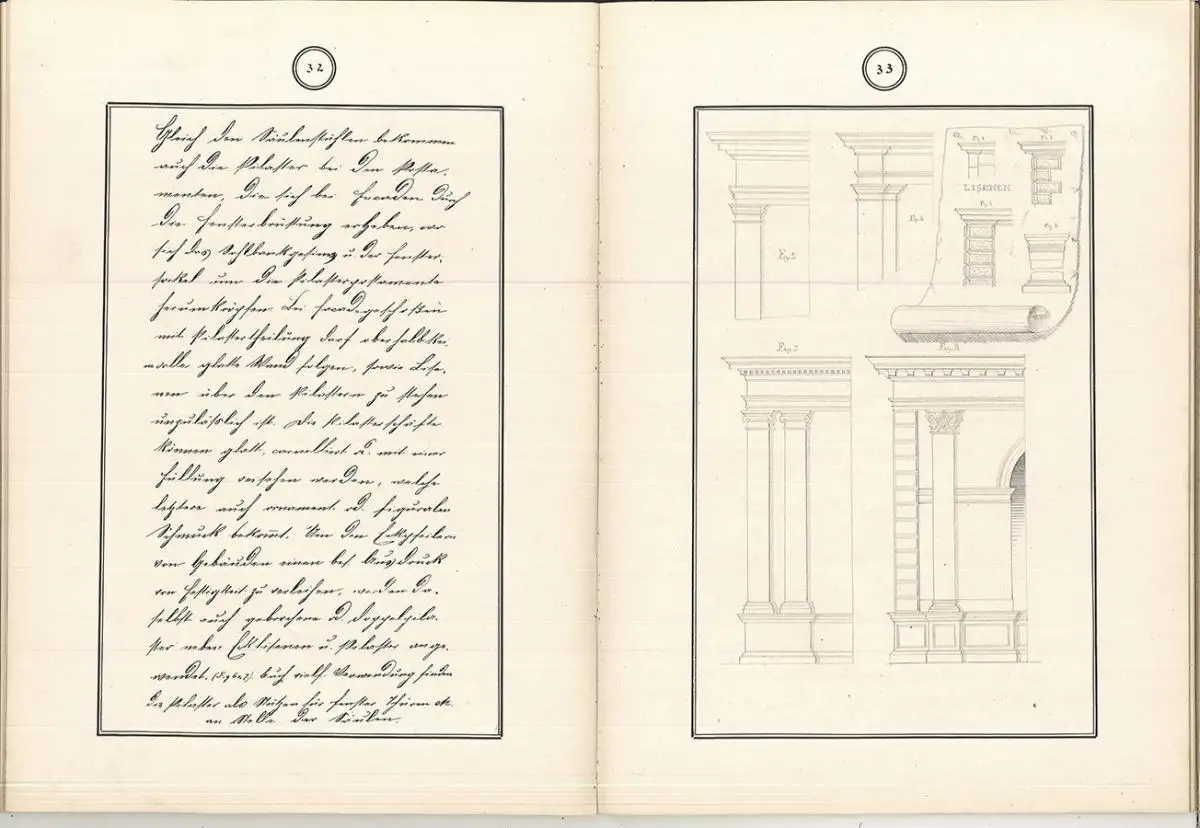 32
Gleich den Säulenstühlen bekommen
auch die Pilaster bei den Posta-
menten, die sich bei Facaden durch
die Fensterbrüstung erheben, wo
sich das Sohlbankgesims u. der Fenster-
sockel um die Pilasterpostamente
herumkröpfen. Bei Facadegeschoßen
mit Pilastertheilung darf oberhalb kei
glatte Wand folgen, sowie Lise-
nen über den Pilastern zu stehen
unzulässlich ist. Die Pilasterschäfte
können glatt, cannelliert od. mit einer
Füllung versehen werden, welche
letztere auch ornament. od. figuralen
Schmuck bekomt. Um den Eckpfeilern
von Gebäuden einen bes. Ausdruck
von Festigkeit zu verleihen, werden da-
selbst auch gebrochene od. Doppelpila-
ster neben Ecklisenen u. Pilaster ange-
wendet. Auch vielf. Verwendung finden
die Pilaster als Stützen für Fenster Thüren etc.
an Stelle der Säulen.
33
Fig. 4
LISENEN
Fig. 6
Fig. 5
Fig. 7
Fig. 8